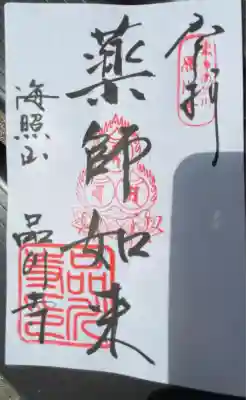 奉拝
薬師如来
海照山
品川寺